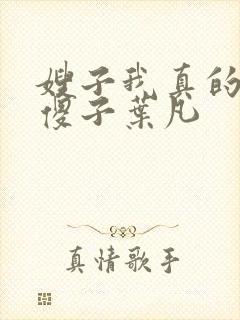 嫂子我真的
傻子葉凡
真情歌手